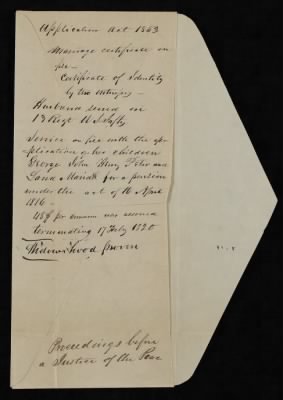 Application Act 1853
Marriage certificate on
file –
Certificate of Identity
by two
Husband served in
13 Regt U S Infty
Service on file with the ap-
plication of her children
George John Henry Peter and
Maria for a pension
under the act of 16 April
1816 –
48$ per annum was allowed
terminating 17 Feby 1820
Widowhood proven
Proceedings before
a Justice of the Peace